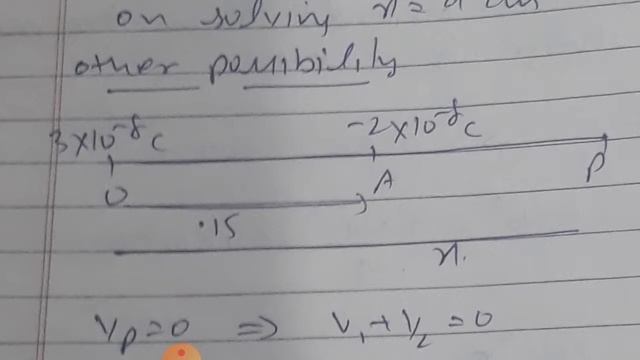 on solving x = 9 cm
other possibility
3×10⁻⁸ C -2×10⁻⁸ C
O A P
.15
x.
Vp=0 ⇒ V₁+V₂=0